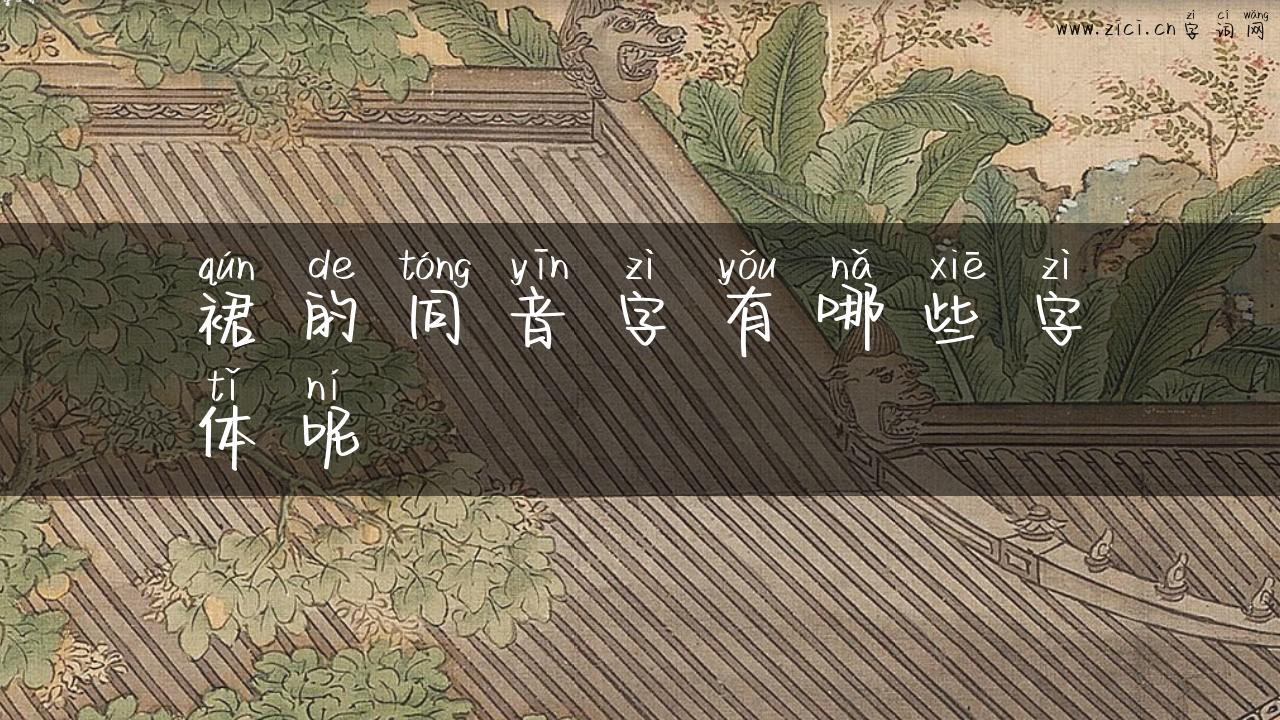 zì cí wǎng
www.zici.cn 字 词 网
qún de tóng yīn zì yǒu nǎ xiē zì
裙 的 同 音 字 有 哪 些 字
tǐ ní
体 呢